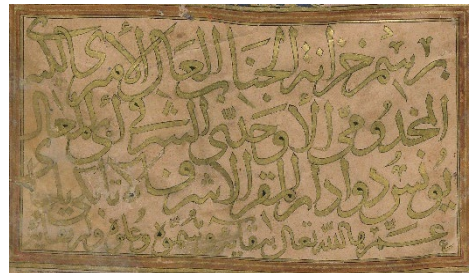 برسم خزانة الجناب العالي الأميري
المخدومي الأوحدي الشرفي أبي المعالي
يونس دوادار المقر الأشرف
عمرها الله تعالى ببقائه